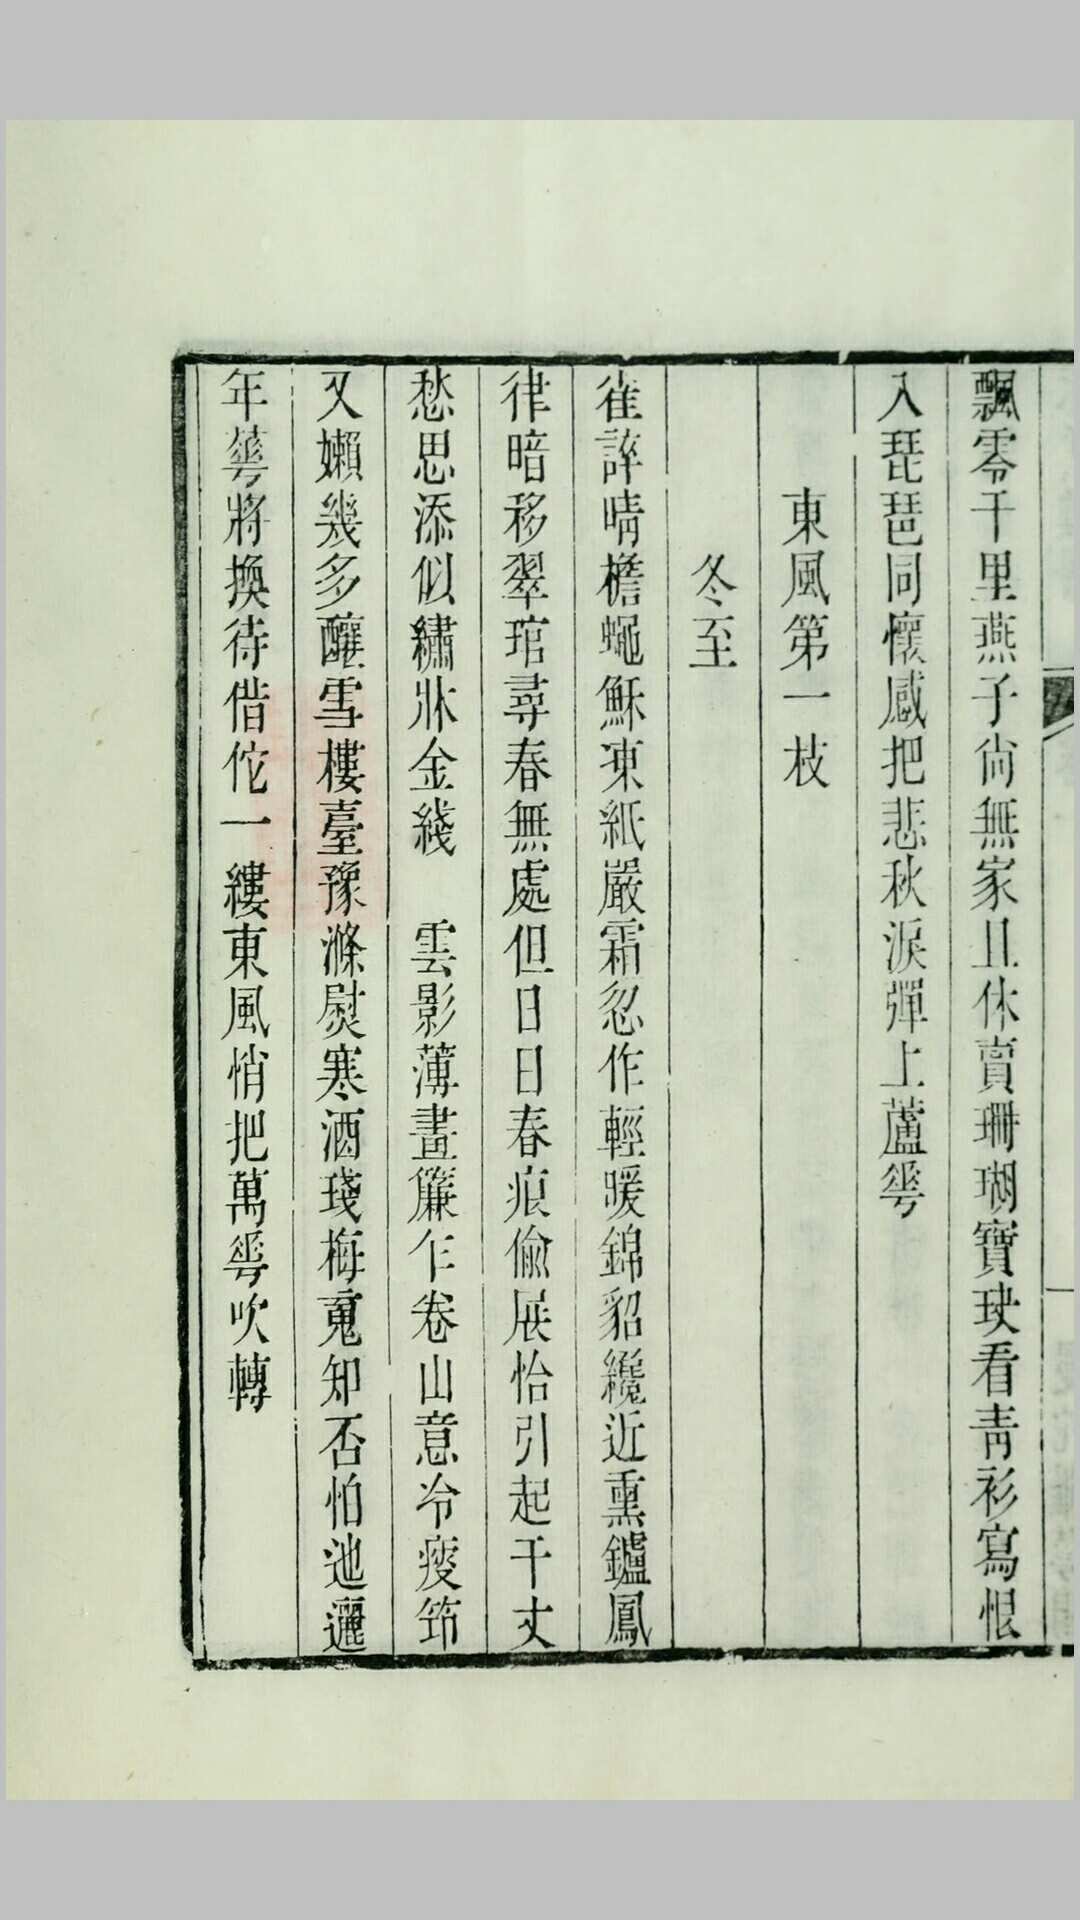 飄零千里燕子尙無家且休賣珊瑚寶玦看靑衫寫恨
入琵琶同懷感把悲秋淚彈上蘆蕐
東風第一枝
冬至
雀誶晴檐蠅穌凍紙嚴霜忽作輕暖錦貂纔近熏鑪鳳
律暗移翠琯尋春無處但日日春痕偸展怡引起千丈
愁思添似繡牀金綫　雲影薄畫簾乍卷山意冷瘦筇
又嬾幾多釀雪樓臺豫滌熨寒酒琖梅䰟知否怕迆邐
年蕐將換待借佗一縷東風悄把萬蕐吹轉